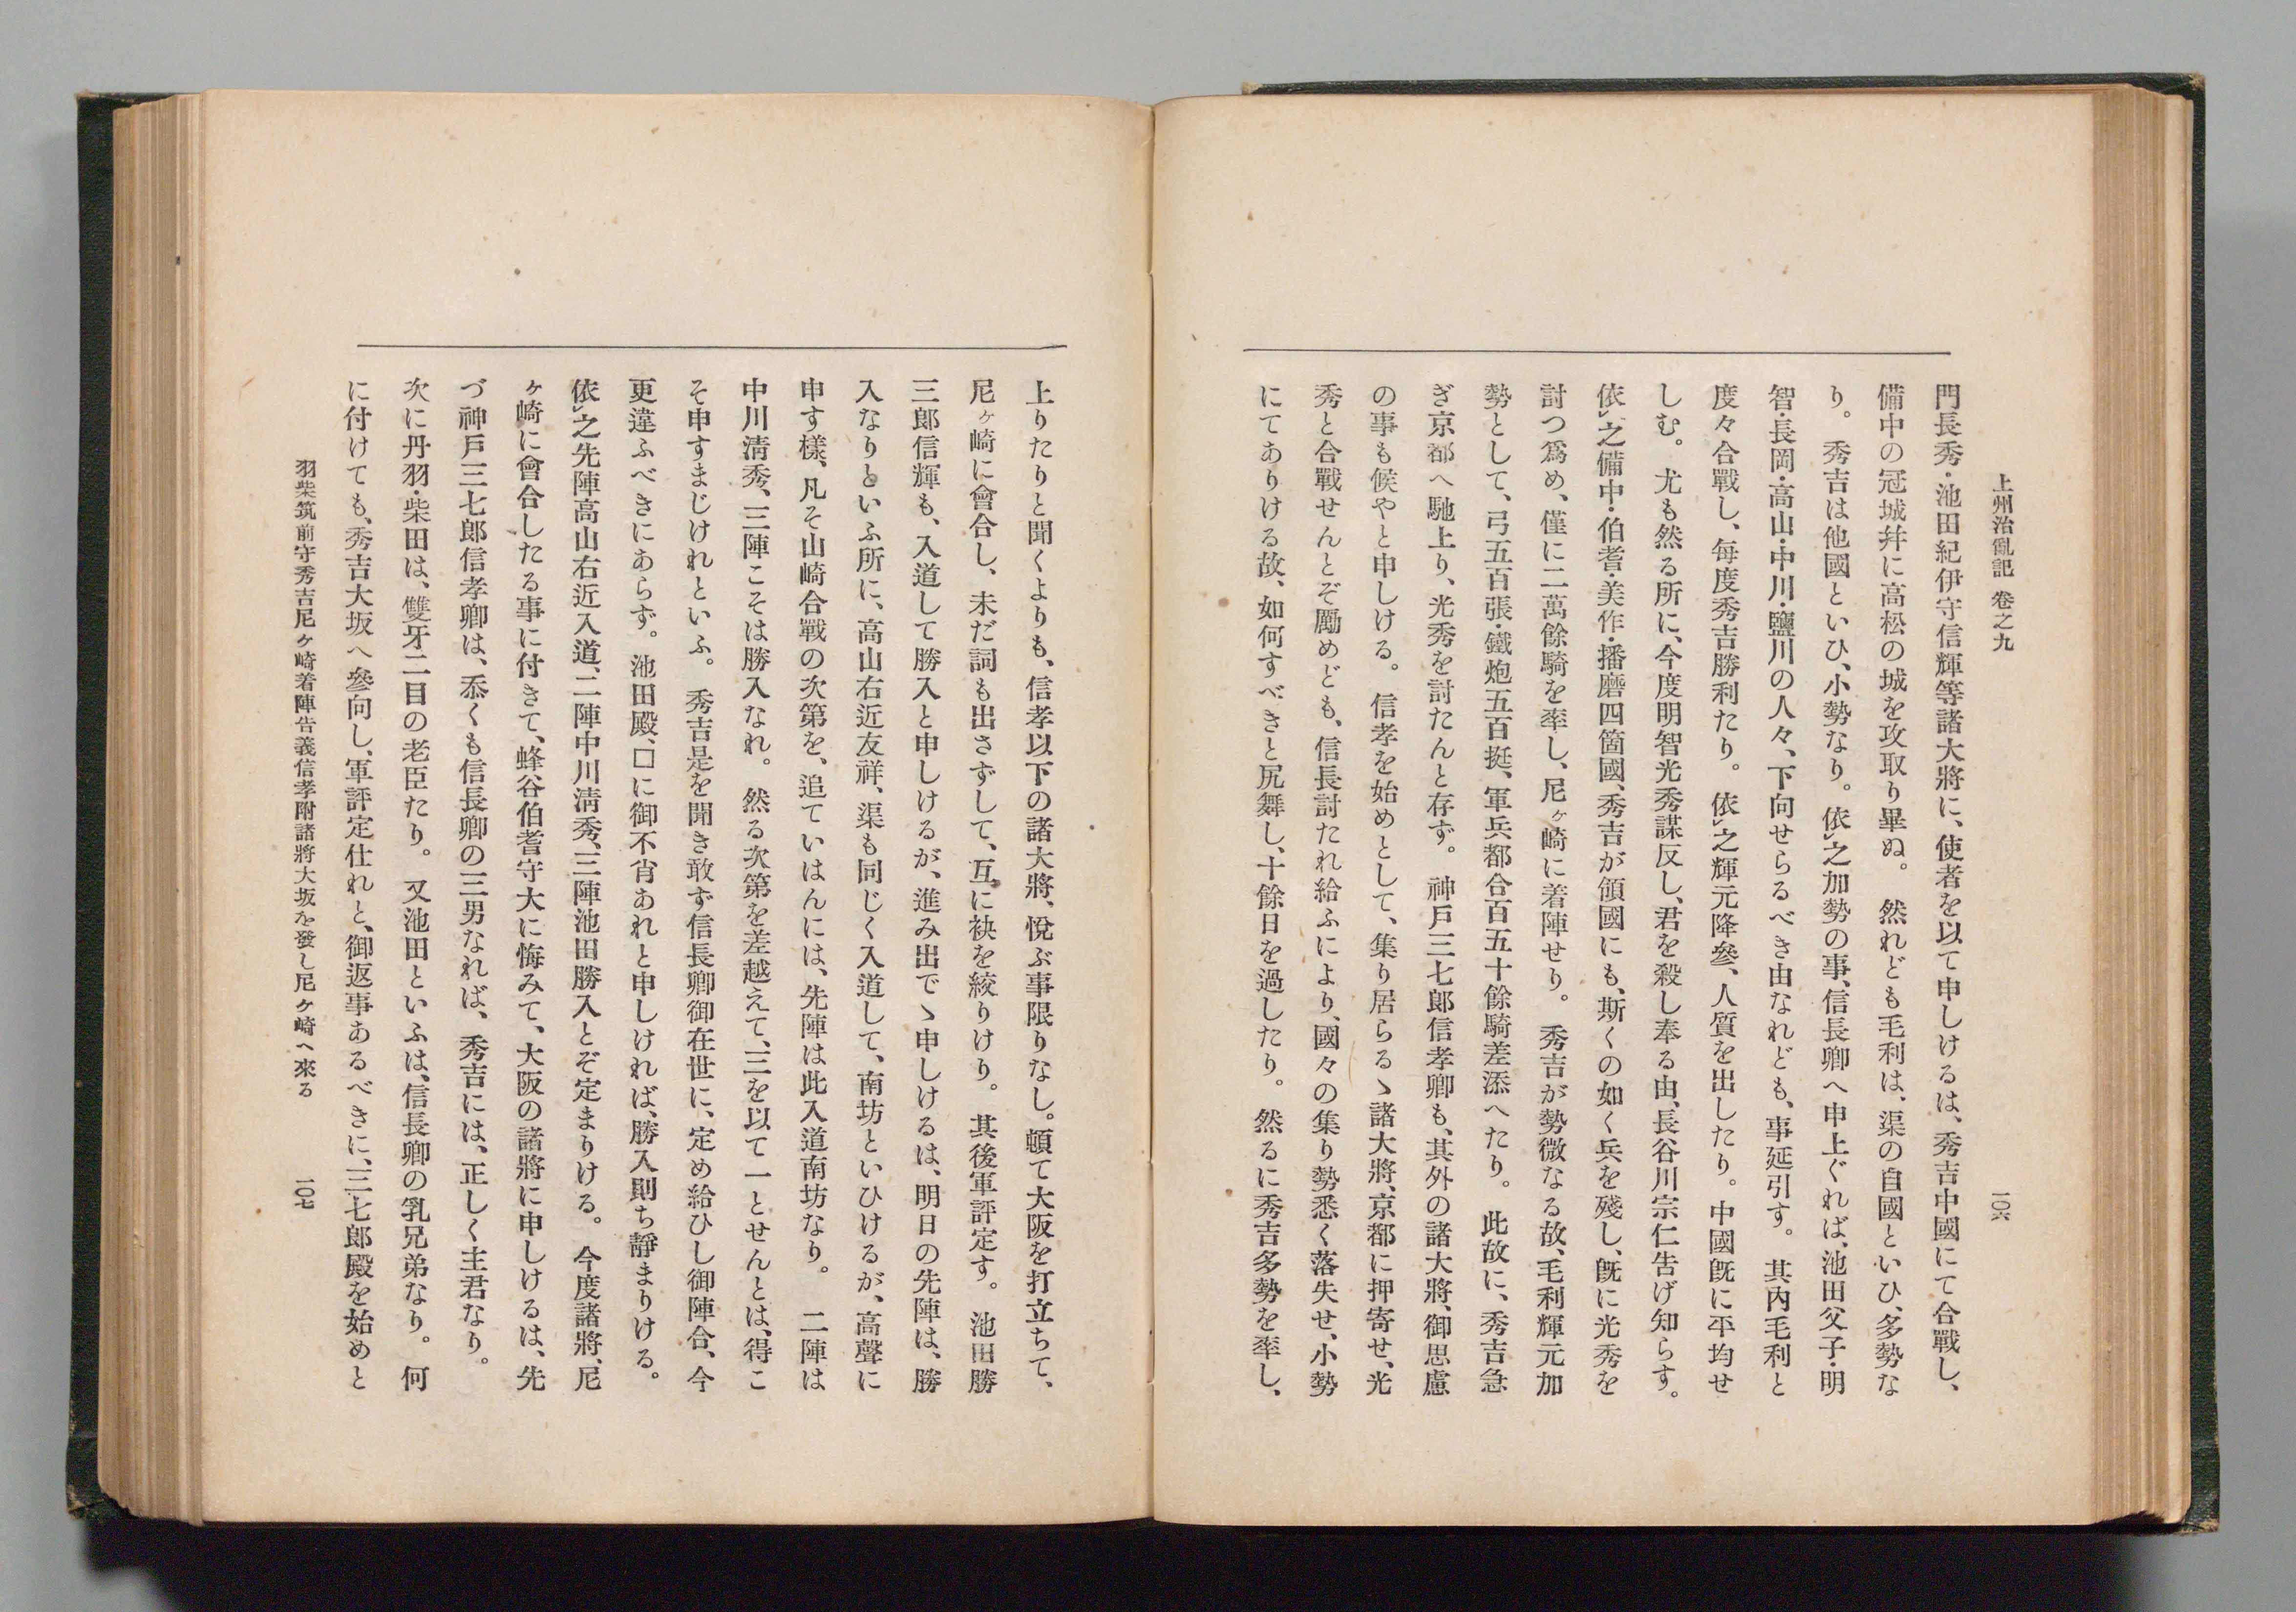 上州治亂記 卷之九
一〇六
門長秀・池田紀伊守信輝等諸大將に、使者を以て申しけるは、秀吉中國にて合戰し、
備中の冠城幷に高松の城を攻取り畢ぬ。然れども毛利は、渠の自國といひ、多勢な
り。秀吉は他國といひ、小勢なり。依㆑之加勢の事、信長卿へ申上ぐれば、池田父子・明
智・長岡・高山・中川・鹽川の人々、下向せらるべき由なれども、事延引す。其內毛利と
度々合戰し、每度秀吉勝利たり。依㆑之輝元降參、人質を出したり。中國旣に平均せ
しむ。尤も然る所に、今度明智光秀謀反し、君を殺し奉る由、長谷川宗仁吿げ知らす。
依㆑之備中・伯耆・美作・播磨四箇國、秀吉が領國にも、斯くの如く兵を殘し、旣に光秀を
討つ爲め、僅に二萬餘騎を率し、尼ヶ崎に着陣せり。秀吉が勢微なる故、毛利輝元加
勢として、弓五百張・鐵炮五百挺、軍兵都合百五十餘騎差添へたり。此故に、秀吉急
ぎ京都へ馳上り、光秀を討たんと存ず。神戸三七郎信孝卿も、其外の諸大將、御思慮
の事も候やと申しける。信孝を始めとして、集り居らるゝ諸大將、京都に押寄せ、光
秀と合戰せんとぞ勵めども、信長討たれ給ふにより、國々の集り勢悉く落失せ、小勢
にてありける故、如何すべきと尻舞し、十餘日を過したり。然るに秀吉多勢を率し、
上りたりと聞くよりも、信孝以下の諸大將、悅ぶ事限りなし。頓て大阪を打立ちて、
尼ヶ崎に會合し、未だ詞も出さずして、互に袂を絞りけり。其後軍評定す。池田勝
三郎信輝も、入道して勝入と申しけるが、進み出でゝ申しけるは、明日の先陣は、勝
入なりといふ所に、高山右近友祥、渠も同じく入道して、南坊といひけるが、高聲に
申す樣、凡そ山崎合戰の次第を、追ていはんには、先陣は此入道南坊なり。二陣は
中川淸秀、三陣こそは勝入なれ。然る次第を差越えて、三を以て一とせんとは、得こ
そ申すまじけれといふ。秀吉是を聞き敢ず信長卿御在世に、定め給ひし御陣合、今
更違ふべきにあらず。池田殿、□に御不肖あれと申しければ、勝入則ち靜まりける。
依㆑之先陣高山右近入道、二陣中川淸秀、三陣池田勝入とぞ定まりける。今度諸將、尼
ヶ崎に會合したる事に付きて、蜂谷伯耆守大に悔みて、大阪の諸將に申しけるは、先
づ神戸三七郎信孝卿は、忝くも信長卿の三男なれば、秀吉には、正しく主君なり。
次に丹羽・柴田は、雙牙二目の老臣たり。又池田といふは、信長卿の乳兄弟なり。何
に付けても、秀吉大坂へ參向し、軍評定仕れと、御返事あるべきに、三七郎殿を始めと
羽柴筑前守秀吉尼ヶ崎着陣吿義信孝附諸將大坂を發し尼ヶ崎へ來る
一〇七